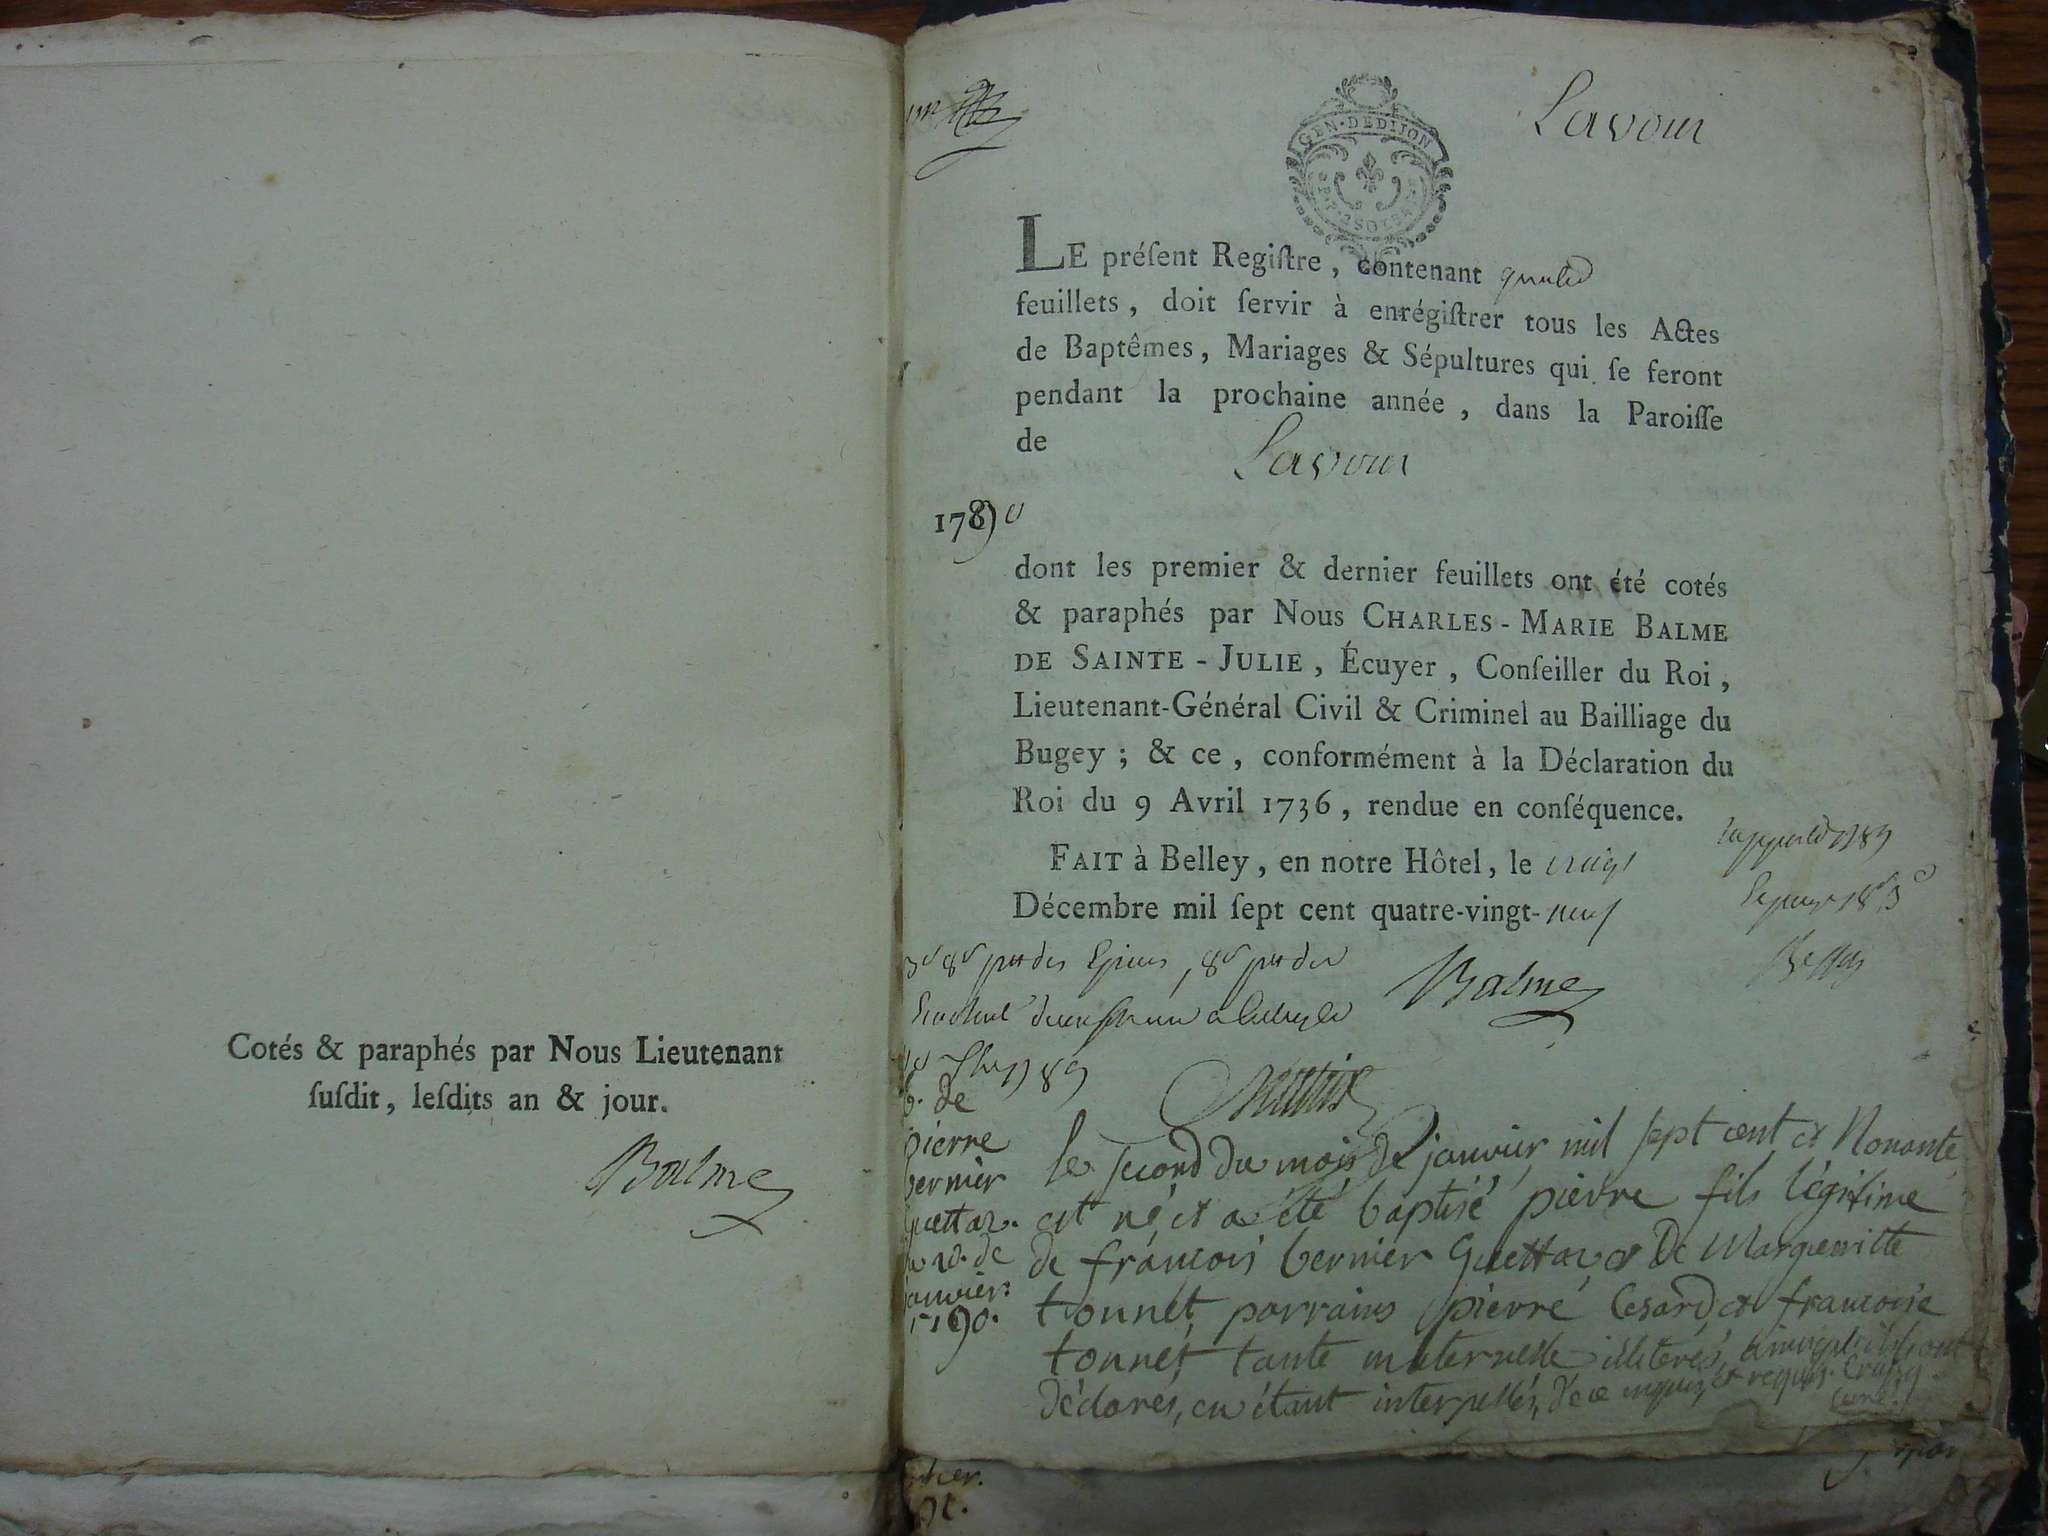 Cotés & paraphés par Nous Lieutenant
ſuſdit, leſdits an & jour.
Balme
Lavour
GEN. DE DIJON
LE préſent Regiſtre, contenant
feuillets, doit ſervir à enrégiſtrer tous les Actes
de Baptêmes, Mariages & Sépultures qui ſe feront
pendant la prochaine année, dans la Paroiſſe
de Lavour
1790
dont les premier & dernier feuillets ont été cotés
& paraphés par Nous CHARLES-MARIE BALME
DE SAINTE-JULIE, Écuyer, Conſeiller du Roi,
Lieutenant-Général Civil & Criminel au Bailliage du
Bugey; & ce, conformément à la Déclaration du
Roi du 9 Avril 1736, rendue en conſéquence.
FAIT à Belley, en notre Hôtel, le vingt
Décembre mil ſept cent quatre-vingt-neuf
Balme
b. de
pierre
bernier
guettaz.
janvier
1790.
le second du mois de janvier mil sept cent et Nonante
est né et a été baptisé pierre fils légitime
de francois bernier Guettaz et De Margueritte
tonnet, parrains pierre Cesard et francoise
tonnet tante maternelle illiterés,
déclarés, en étant interpellés, de ce enquis et requis. Cruzy
curé.